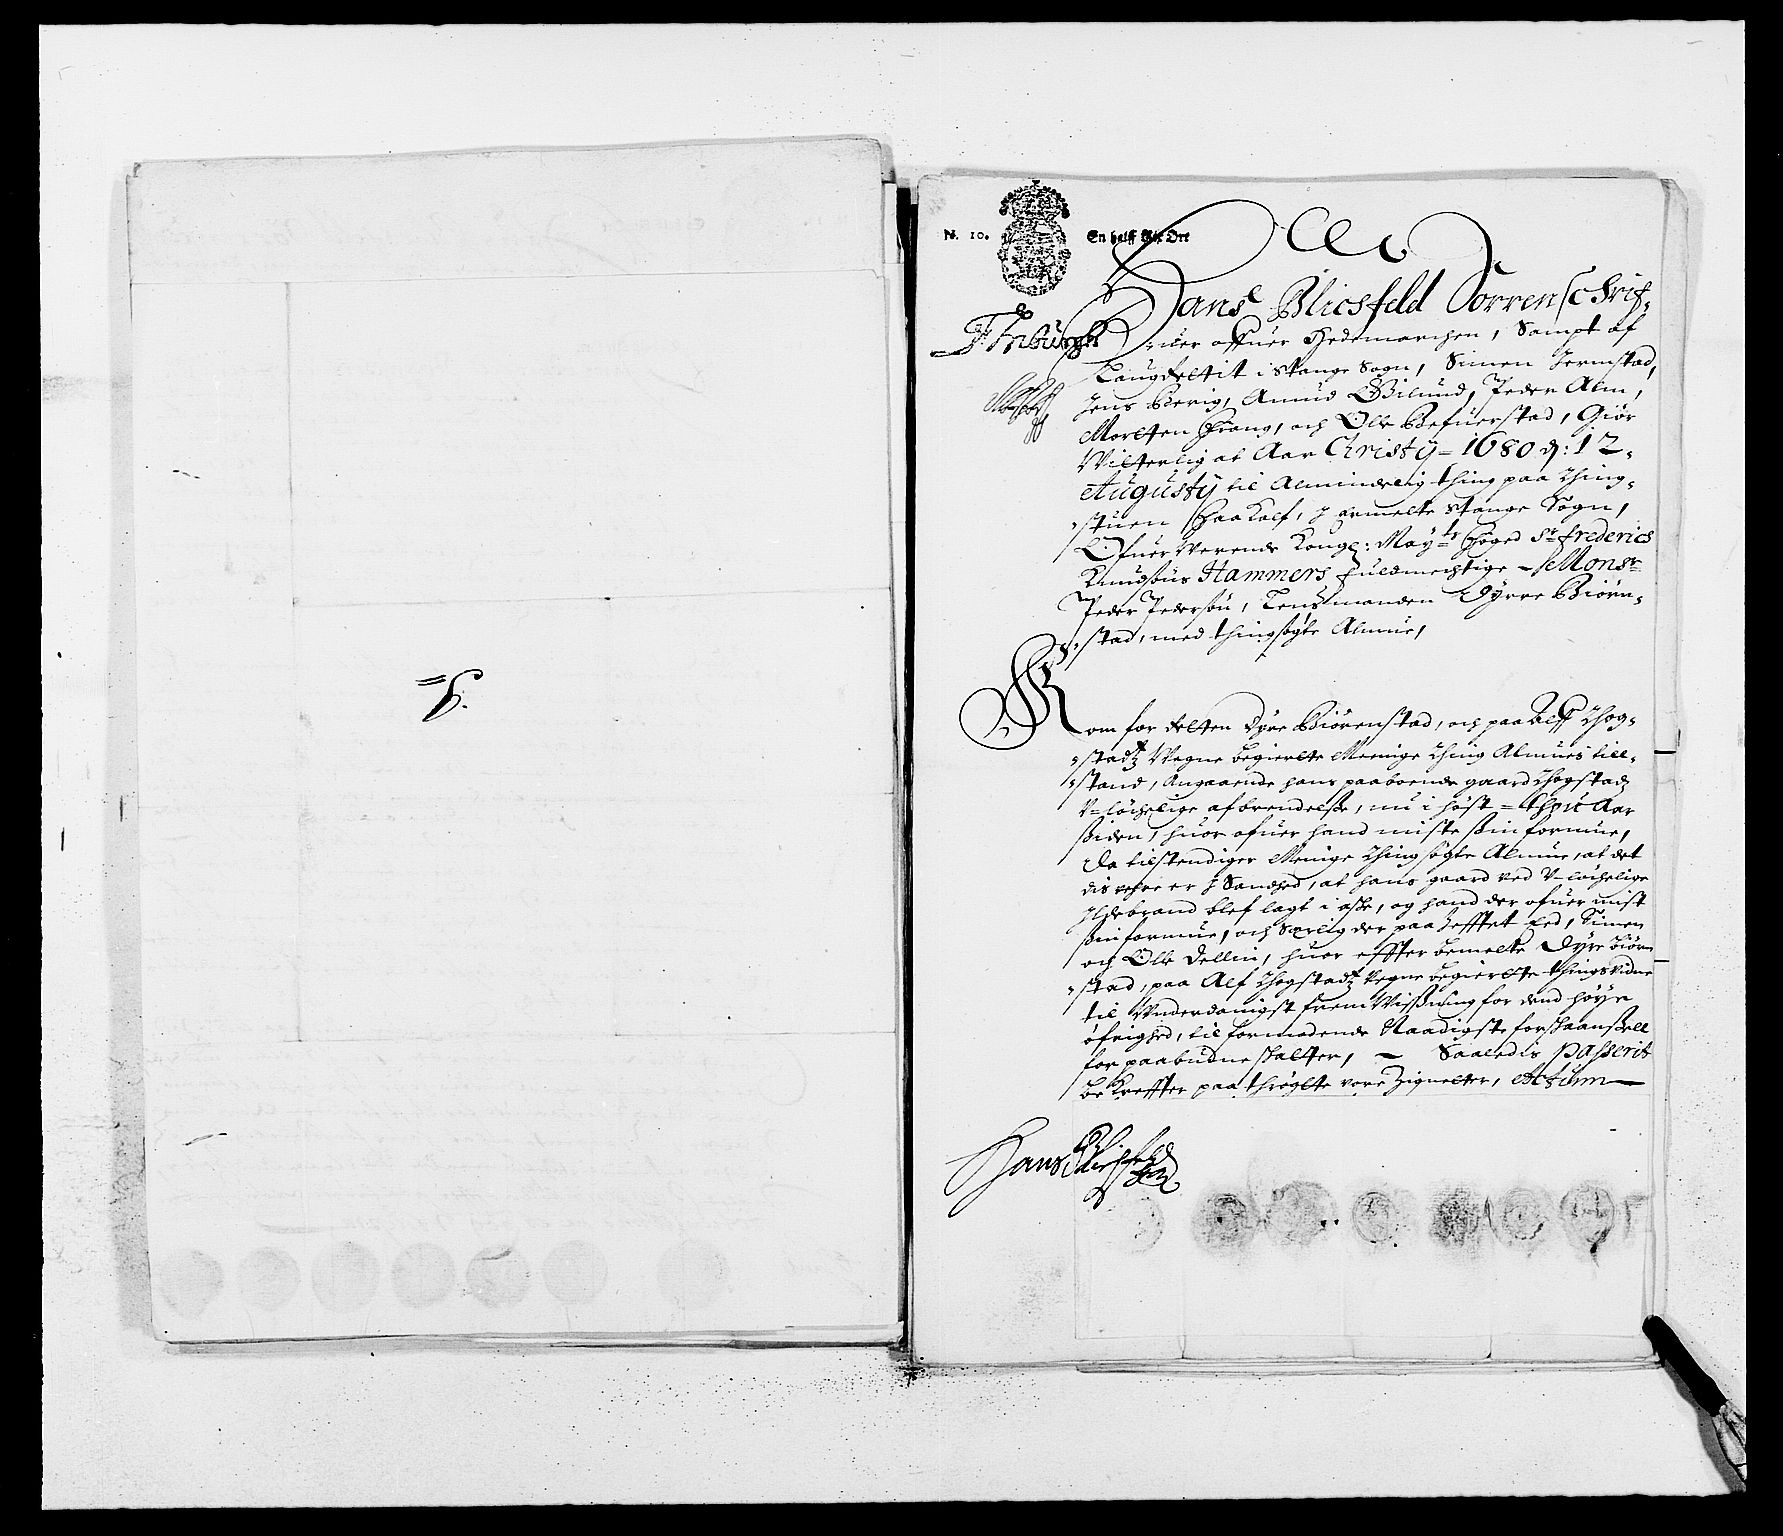 N. 10. En halff Rix Ort
Hans Blicsfeld Sorrenschrif-
-uer offuer Hedemarchen, Sampt af
Laugrettit i Stange Sogn, Simen Jermstad,
Jens Berig, Amund Wilund, Peder Alm,
Morten Frang, och Olle Befuerstad, Giør
Witterlig at Aar Christÿ - 1680 d: 12.
Augustÿ til Almindelig thing paa Thing-
-stuen Haakalf, J bemelte Stange Sogn,
Ofuer Werende Kongl: Maÿts Foged Sr frederics
Knudsøns Hammers fuldmechtige - Monsr
Peder Pedersøn, Lensmanden Dÿrre Biørn-
-stad, med thingsøgte Almue,
Kom for Retten Dyre Biørenstad, och paa Alff Thog-
-stadz Wegne begierte Menige Thing Almues till-
-stand, Angaaende hans paaboende gaard Thogstadz
V-løchelige afbrendelse, nu i høst - thou Aar
siden, huor ofuer hand miste sin formue,
Da tilstendiger Menige Thingsøgte Almue, at det
dis verre er J Sandhed, at hans gaard ved V-løchelige
Ildebrand blef lagt i aske, og hand der ofuer mist
sin formue, och Særlig der paa hefftet Eed, Simen
och Olle Dellin, huor effter bemelte Dÿre Biørn
-stad, paa Alf Thogstadz Vegne begierte thingsvidne
til Vnderdanigst frem Wissning for dend høÿe
øfrighed, til formodende Naadigste forskaansell
for paabudne skatter, - Saaledis Passerit
bekreffter paa thrögte vore Zignetter, Actum
Hans Blichfeldt